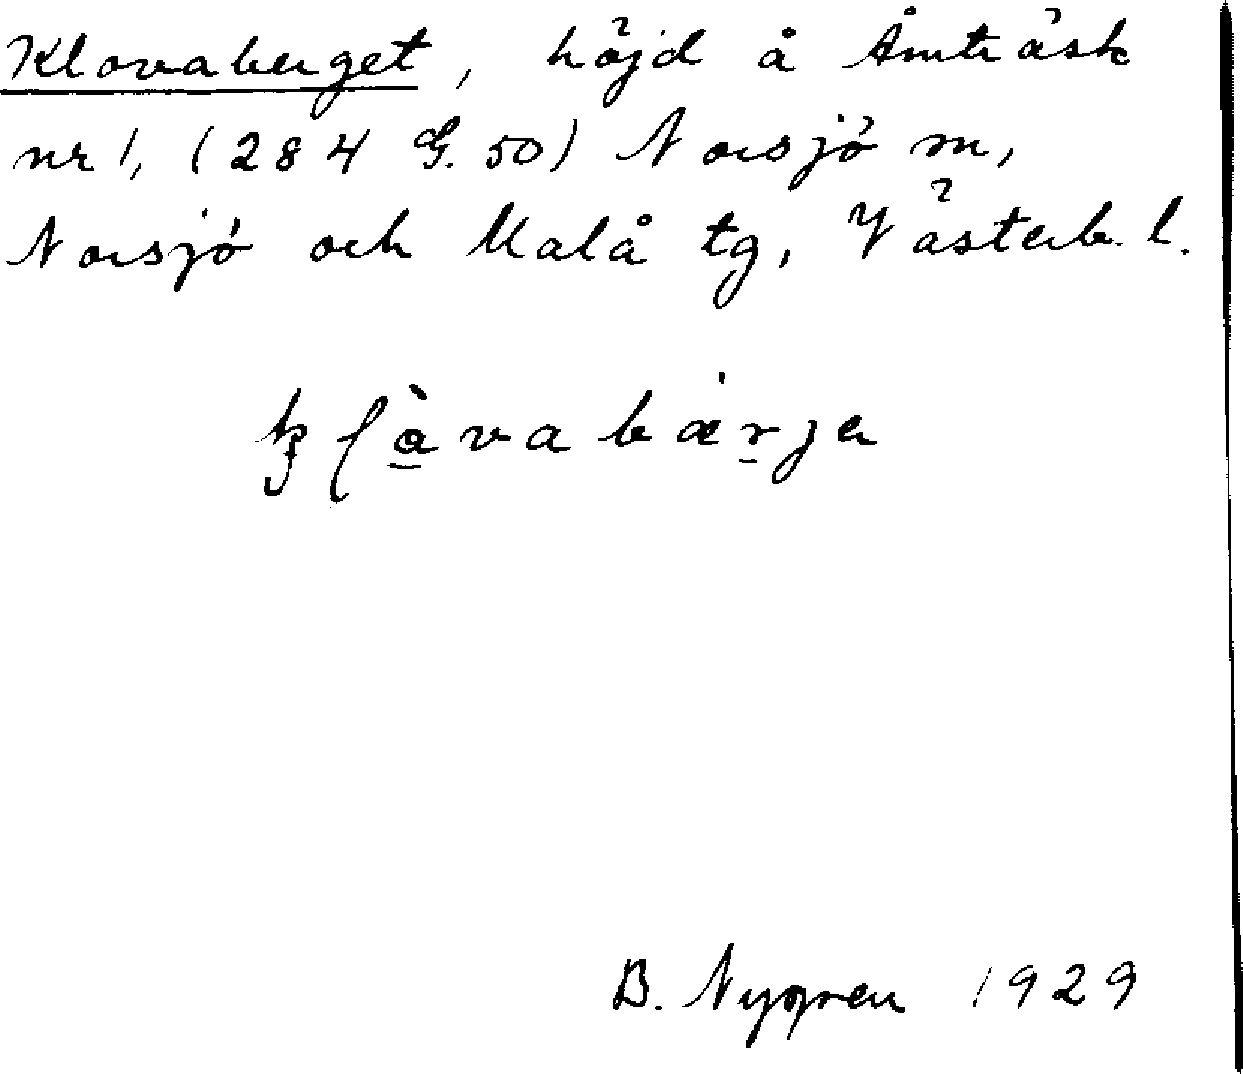 Klovaberget, höjd å Åmträsk
nr 1, (284 G. 50) Norsjö m,
Norsjö och Malå tg, Västerb. l.
kl̀a̠vabær̠ja
B. Nygren 1929